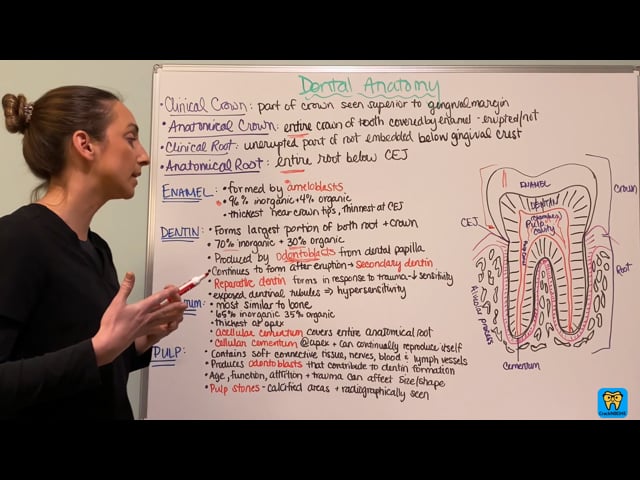 Dental Anatomy
• Clinical Crown: part of crown seen superior to gingival margin
• Anatomical Crown: entire crown of tooth covered by enamel - erupted/not
• Clinical Root: unerupted part of root embedded below gingival crest
• Anatomical Root: entire root below CEJ
ENAMEL: • formed by ameloblasts
• 96% inorganic + 4% organic
• thickest near crown tips, thinnest at CEJ
DENTIN: • Forms largest portion of both root + crown
• 70% inorganic + 30% organic
• Produced by odontoblasts from dental papilla
• Continues to form after eruption → secondary dentin
• Reparative dentin forms in response to trauma - ↓ sensitivity
• exposed dentinal tubules ⇒ hypersensitivity
um: • most similar to bone
• 65% inorganic 35% organic
• thickest at apex
• acellular cementum covers entire anatomical root
• Cellular cementum @ apex + can continually reproduce itself
PULP: • Contains soft connective tissue, nerves, blood + lymph vessels
• Produces odontoblasts that contribute to dentin formation
• Age, function, attrition + trauma can affect size/shape
• Pulp stones - calcified areas + radiographically seen
ENAMEL
DENTIN
(chamber)
Pulp
cavity
CEJ
Crown
Root
Alveolar process
Cementum